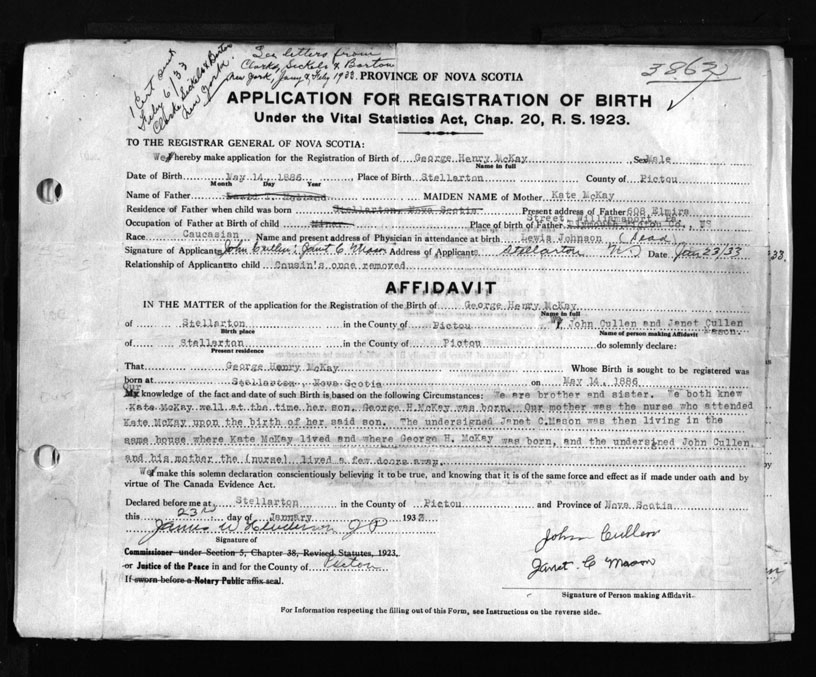 See letters from
Clarke, Sickels & Barton
New York, Jany & Feby 1933.
1 Cert sent
Feby 6/33
Clarke Sickels & Barton
New York.
3862
PROVINCE OF NOVA SCOTIA
APPLICATION FOR REGISTRATION OF BIRTH
Under the Vital Statistics Act, Chap. 20, R. S. 1923.
TO THE REGISTRAR GENERAL OF NOVA SCOTIA:
We hereby make application for the Registration of Birth of George Henry McKay Sex Male
Name in full
Date of Birth May 14, 1886 Place of Birth Stellarton County of Pictou
Month Day Year
Name of Father MAIDEN NAME of Mother Kate McKay
Residence of Father when child was born Stellarton, Nova Scotia Present address of Father 608 Elmira
Street, Williamsport, Pa.
Occupation of Father at Birth of child Place of birth of Father Co., NS
Race Caucasian Name and present address of Physician in attendance at birth Lewis Johnson (Dead)
Signature of Applicants John Cullen, Janet C Mason Address of Applicants Stellarton N S Date Jan 23/33
Relationship of Applicant to child Cousin's once removed
AFFIDAVIT
IN THE MATTER of the application for the Registration of the Birth of George Henry McKay
Name in full
of Stellarton in the County of Pictou We, John Cullen and Janet Cullen
Mason.
Birth place Name of person making Affidavit
of Stellarton in the County of Pictou do solemnly declare:
Present residence
That George Henry McKay Whose Birth is sought to be registered was
born at Stellarton, Nova Scotia on May 14, 1886
Our
My knowledge of the fact and date of such Birth is based on the following Circumstances: We are brother and sister. We both knew
Kate McKay well at the time her son, George H.McKay was born. Our mother was the nurse who attended
Kate McKay upon the birth of her said son. The undersigned Janet C.Mason was then living in the
same house where Kate McKay lived and where George H. McKay was born, and the undersigned John Cullen,
and his mother the (nurse) lived a few doors away.
We make this solemn declaration conscientiously believing it to be true, and knowing that it is of the same force and effect as if made under oath and by
virtue of The Canada Evidence Act.
Declared before me at Stellarton in the County of Pictou and Province of Nova Scotia
this 23rd day of January 1933
James W Henderson J P
Signature of
Commissioner under Section 5, Chapter 38, Revised Statutes, 1923,
or Justice of the Peace in and for the County of Pictou
If sworn before a Notary Public affix seal.
John Cullen
Janet C Mason
Signature of Person making Affidavit.
For Information respecting the filling out of this Form, see Instructions on the reverse side.